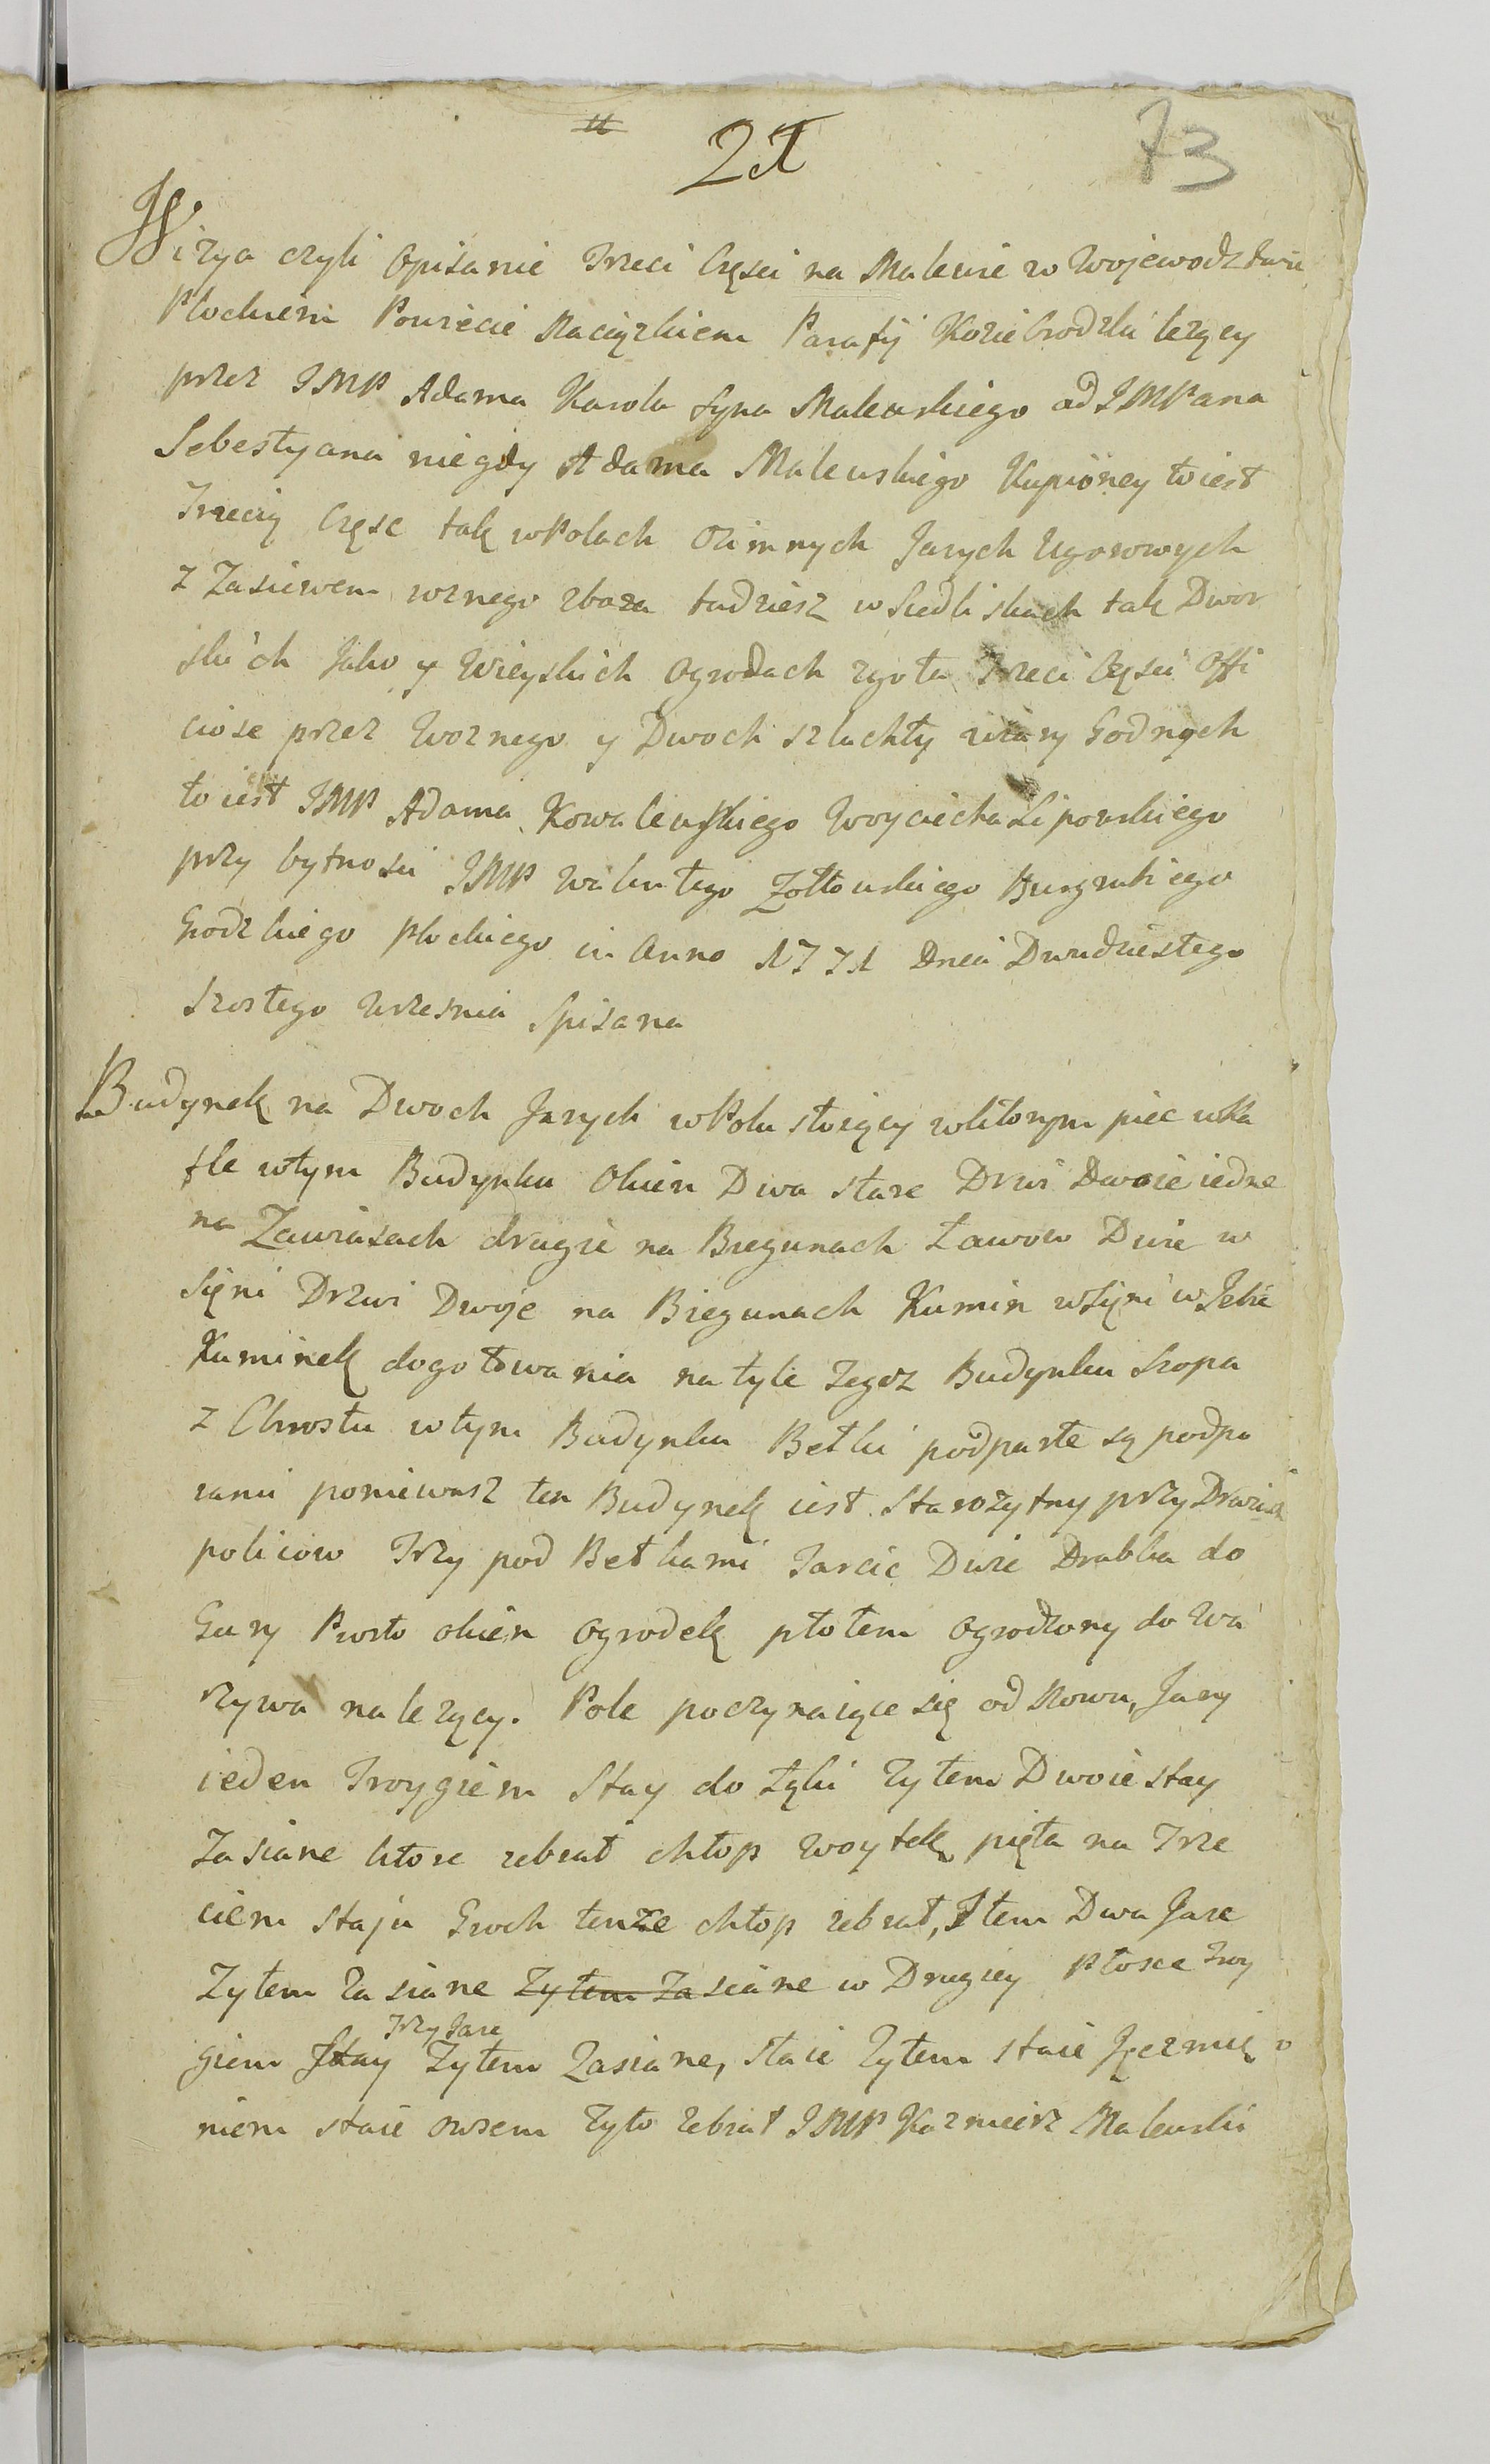 21
73
Wizya czyli Opisanie Trzeci Częsci na Malewie w Wojewodztwie
Plockiem Powiecie Raciązkiem Parafij Koziebrodzki lezący
przez JMP Adama Karola syna Malewskiego od JMPana
Sebestyana niegdy Adama Malewskiego Kupioney to iest
Trzecią Częsc tak w Polach Ozimnych Jarych Ugorowych
z Zasiewem roznego zboza tudziesz w Siedliskach tak Dwor
skich Jako y Wieyskich Ogrodach zgoła Trzeci Częsci Offi
ciose przez Woznego y Dwoch szlachty wiary Godnych
to iest JMP Adama Kowalewskiego Woyciecha Lipowskiego
przy bytnosci JMP Walentego Zołtowskiego Burgrabiego
Grodzkiego Plockiego in Anno 1771 Dnia Dwudziestego
Szostego Wrzesnia Spisana
Budynek na Dwoch Jarych w Polu stoiący w ktorym piec w Ka
fle w tym Budynku Okien Dwa stare Drzwi Dwoie iedne
na Zawiasach drugie na Biegunach Ławow Dwie w
Sięni Drzwi Dwoje na Biegunach Kumin w Sięni w Izbie
Kuminek do gotowania na tyle Tegoz Budynku Szopa
z Chrostu w tym Budynku Betki podparte są podpo
rami poniewasz ten Budynek iest Starozytny przy Drzwiach
policow Trzy pod Betkami Tarcic Dwie Drabka do
Gury Prosto okien Ogrodek płotem Ogrodzony do Wa
rzywa nalezący. Pole poczynaiące się od Rowu, Jary
ieden Troygiem Stay do Łąki Zytem Dwoie stay
Zasiane ktore zebrał chłop Woytek pięta na Trze
ciem staju Groch tenze chłop zebrał, Item Dwa Jare
Zytem Zasiane Zytem Zasiane w Drugiey Płosce Troy
Trzy Jare
giem Stay Zytem Zasiane, staie Zytem staie Jęczmię
niem staie owsem Zyto Zebrał JMP Kazmierz Malewski